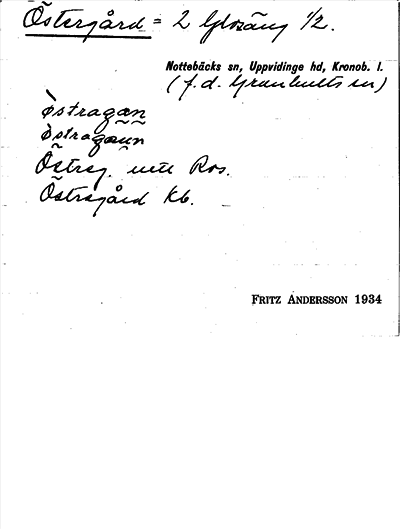 Östergård = 2 Glosäng 1/2.
Nottebäcks sn, Uppvidinge hd, Kronob. l.
(f.d. Granhults sn)
Östragan
Östragaun
Östreg. utt Ros.
Östregård Kb.
FRITZ ANDERSSON 1934